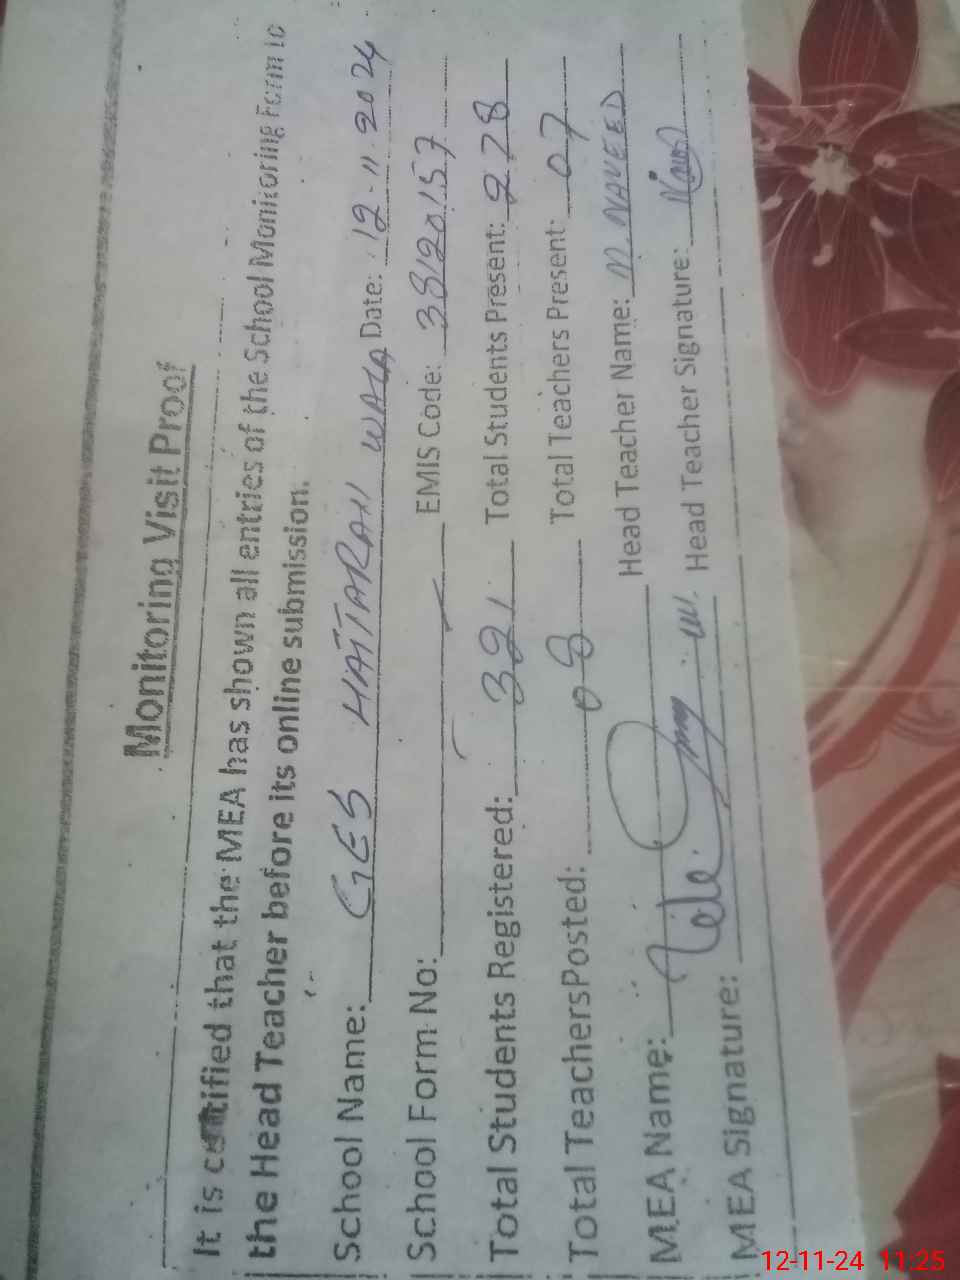 Monitoring Visit Proof
It is certified that the MEA has shown all entries of the School Monitoring Form to
the Head Teacher before its online submission.
School Name: GES HATTARAN WALA Date: 12-11-2024
School Form No: EMIS Code: 38120157
Total Students Registered: 321 Total Students Present: 278
Total TeachersPosted: 08 Total Teachers Present: 07
MEA Name: Head Teacher Name: M. NAVEED
MEA Signature: Head Teacher Signature:
12-11-24 11:25